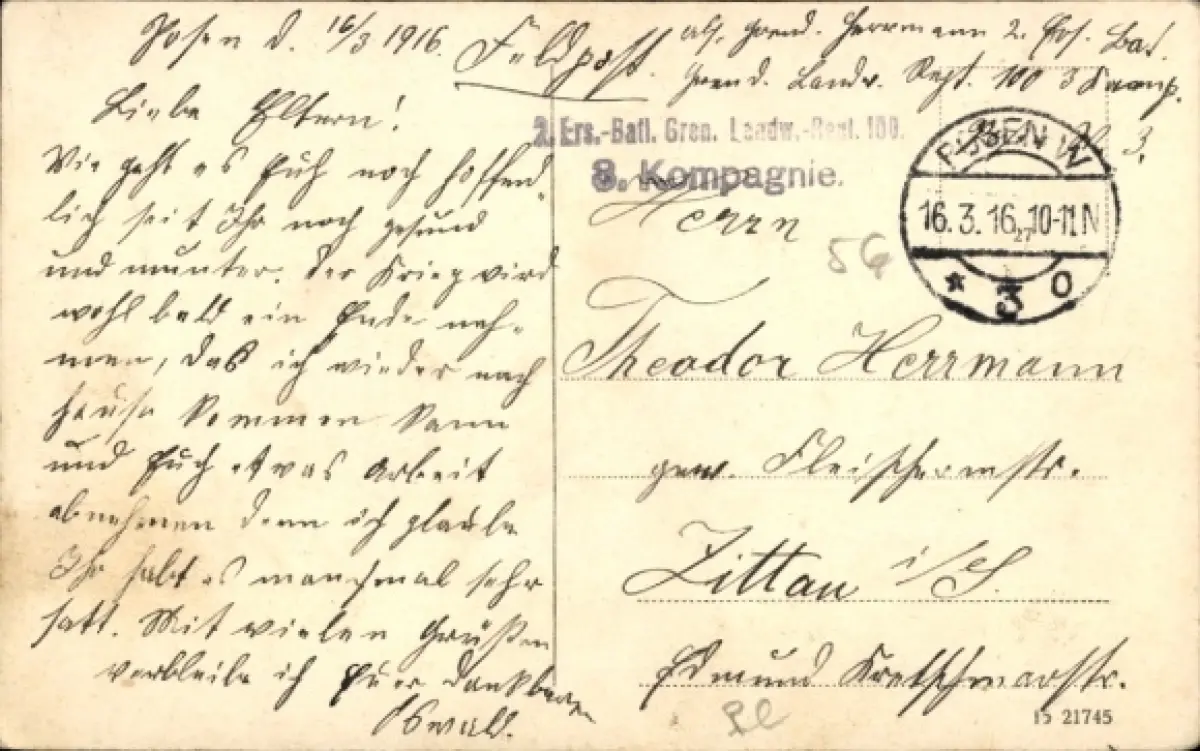 Posen d. 16/3 1916.
Feldpost.
Abs. Gren. Herrmann 2. Ers. Bat.
Grend. Landw. Regt. 100 3 Komp.
3.
Liebe Eltern!
Wie geht es Euch noch hoffend-
lich seit Ihr noch gesund
und munter. Der Krieg wird
wohl bald ein Ende neh-
men, das ich wieder nach
Hause kommen kann
und Euch etwas Arbeit
abnehmen denn ich glaube
Ihr habt es manchmal sehr
satt. Mit vielen Grüßen
verbleibe ich Euer dankbaren
Oswald.
2. Ers.-Batl. Gren. Landw.-Regt. 100.
3. Kompagnie.
POSEN W
16.3.16. 10-11N
* 3 o
Herrn
56
Theodor Herrmann
gew. Fleischermstr.
Zittau i/S.
Edmund Kretschmarstr.
15 21745